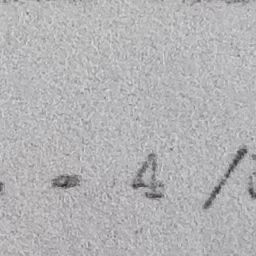 - 4 /